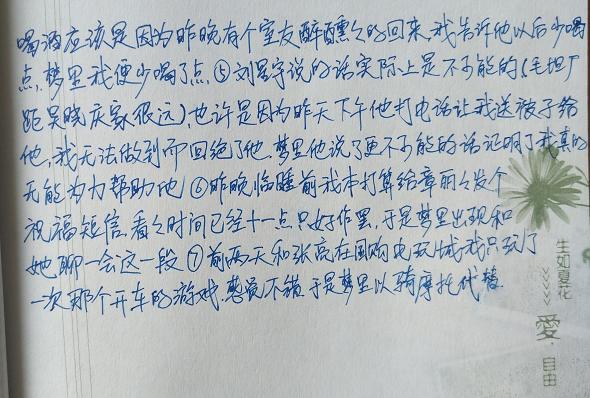 喝酒应该是因为昨晚有个室友醉醺々的回来,我告诉他以后少喝
点,梦里我便少喝了点.⑤刘军宇说的话实际上是不可能的(毛坦厂
距吴晓庆家很远),也许是因为昨天下午他打电话让我送被子给
他,我无法做到而回绝了他.梦里他说了更不可能的话证明了我真的
无能为力帮助他⑥昨晚临睡前我本打算给章丽々发个
祝福短信,看々时间已经十一点只好作罢,于是梦里出现和
她聊一会这一段⑦前两天和张亮在国购电玩城,我只玩了
一次那个开车的游戏.感觉不错,于是梦里以骑摩托代替.
生如夏花
愛.
自由